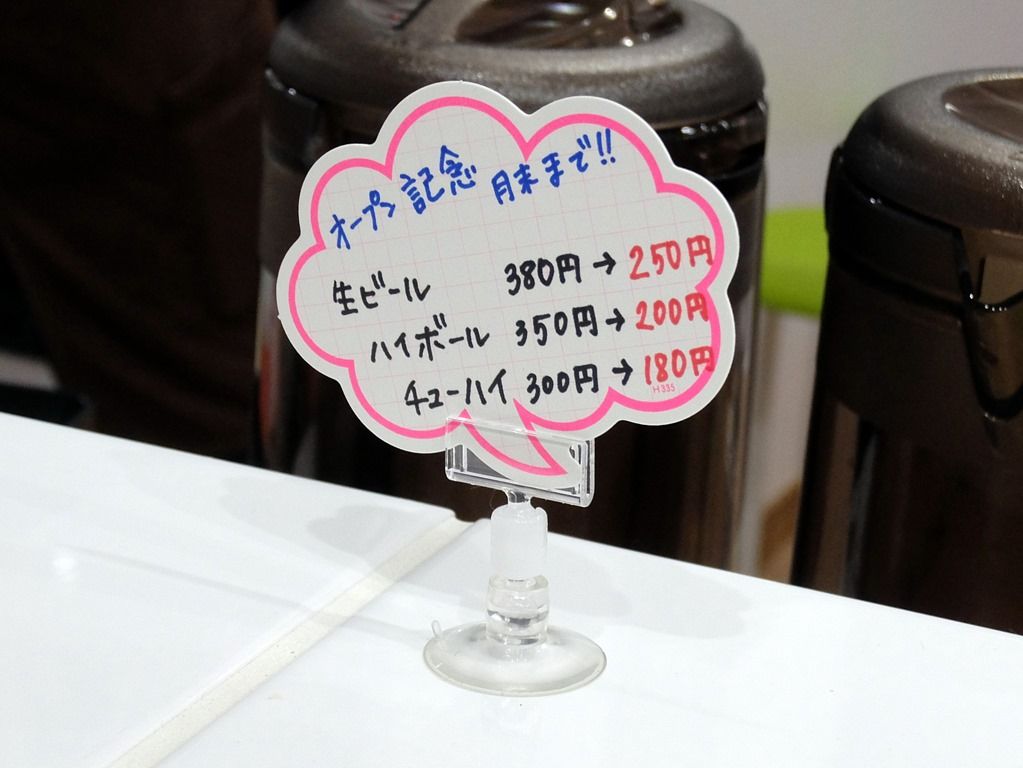 オープン記念 月末まで!!
生ビール 380円→250円
ハイボール 350円→200円
チューハイ 300円→180円
H335